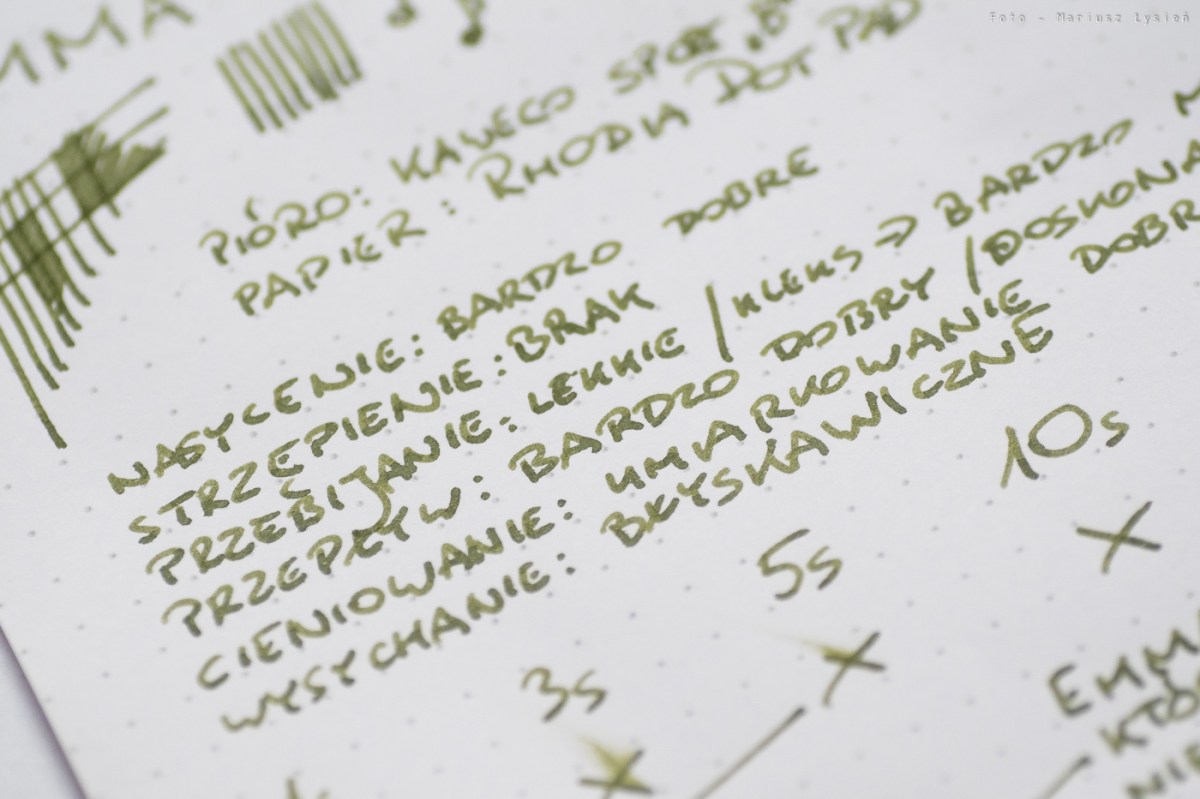 Foto - Mariusz Łysień
MMA
PIÓRO: KAWECO SPORT „B
PAPIER: RHODIA DOT PAD
NASYCENIE: BARDZO DOBRE
STRZĘPIENIE: BRAK
PRZEBIJANIE: LEKKIE / KLEKS → BARDZO M
PRZEPŁYW: BARDZO DOBRY / DOSKONA
CIENIOWANIE: UMIARKOWANIE DOBR
WYSYCHANIE: BŁYSKAWICZNE
10s
5s
3s
EMMA
KTÓ
NIE